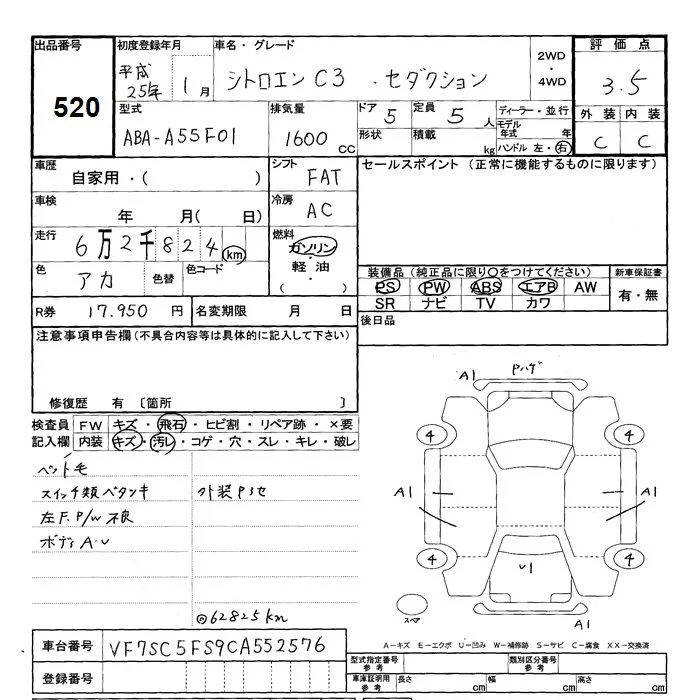 出品番号 初度登録年月 車名・グレード 2WD・4WD 評価点
520 平成25年 1月 シトロエン C3 ・セダクション 3.5
型式 排気量 ドア 5 定員 5人 ディーラー・並行 外装 内装
ABA-A55F01 1600 CC 形状 積載 kg モデル年式 年 C C
ハンドル 左・右
車歴 シフト セールスポイント(正常に機能するものに限ります)
自家用・( ) FAT
車検 冷房
年 月( 日) AC
走行 燃料
6万2千824km ガソリン・軽油・( )
色 色替 色コード 装備品(純正品に限り○をつけてください) 新車保証書
アカ PS PW ABS エアB AW 有・無
SR ナビ TV カワ
R券 17.950 円 名変期限 月 日 後日品
注意事項申告欄(不具合内容等は具体的に記入して下さい)
修復歴 有 〔箇所 〕
検査員記入欄 FW キズ・飛石・ヒビ割・リペア跡・×要
内装 キズ・汚レ・コゲ・穴・スレ・キレ・破レ
ペット毛
スイッチ類ベタツキ 外装Pセ
左F.P/W不良
ボディA.U
◎62825km
A1 Pハゲ
4 4
A1 A1
4 4
U1
スペア A1
A-キズ E-エクボ U-凹み W-補修跡 S-サビ C-腐食 XX-交換済
車台番号 VF7SC5FS9CA552576
登録番号
型式指定番号 参考 類別区分番号 参考
車庫証明用 参考 長さ cm 幅 cm 高さ cm